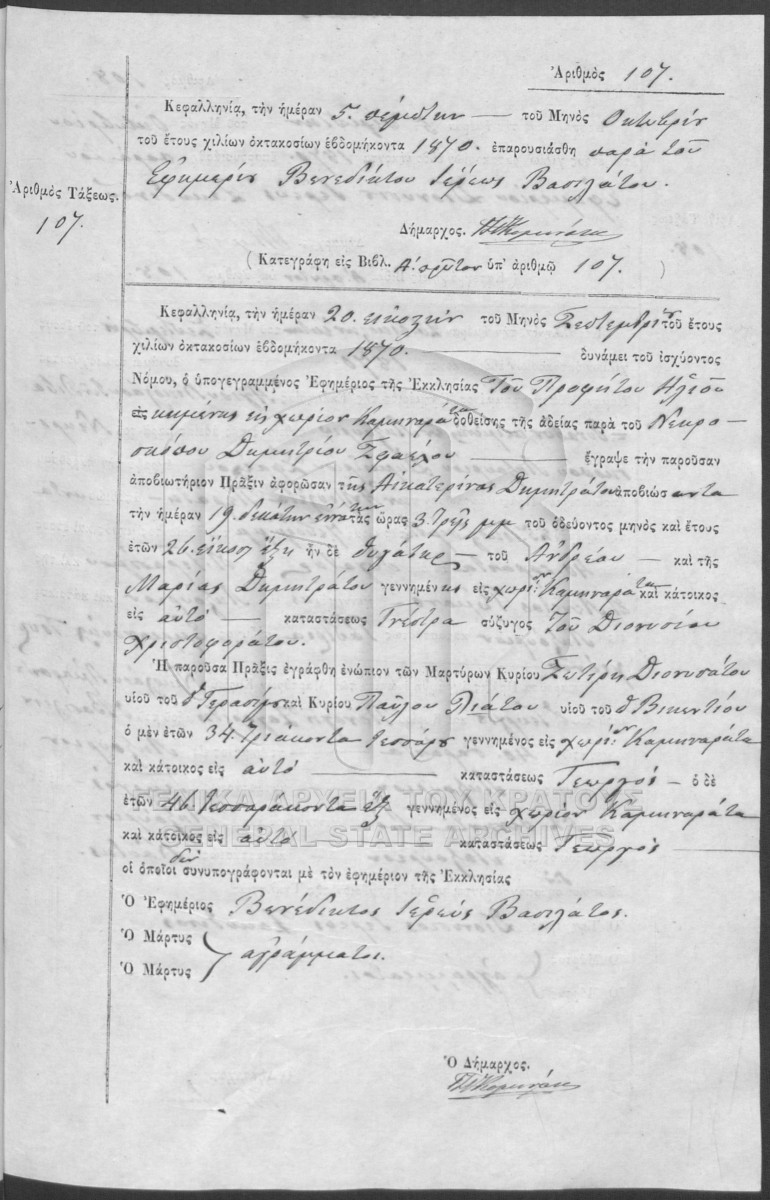 Ἀριθμὸς 107.
Κεφαλληνίᾳ, τὴν ἡμέραν 5. πέμπτην — τοῦ Μηνὸς Οκτωβρίου
τοῦ ἔτους χιλίων ὀκτακοσίων ἑβδομήκοντα 1870. ἐπαρουσιάσθη παρὰ τοῦ
Ἀριθμὸς Τάξεως.
107.
Εφημερίου Βενεδίκτου Ιερέως Βασιλάτου.
Δήμαρχος.
( Κατεγράφη εἰς Βιβλ. Α. πρῶτον ὑπ' ἀριθμῷ 107. )
Κεφαλληνίᾳ, τὴν ἡμέραν 20. εικοστὴν τοῦ Μηνὸς Σεπτεμβρίου τοῦ ἔτους
χιλίων ὀκτακοσίων ἑβδομήκοντα 1870. — δυνάμει τοῦ ἰσχύοντος
Νόμου, ὁ ὑπογεγραμμένος Ἐφημέριος τῆς Ἐκκλησίας Τοῦ Προφήτου Ηλιοῦ
εἰς κειμένης εις χωρίον Καμιναράτα δοθείσης τῆς ἀδείας παρὰ τοῦ Νεκρο-
σκόπου Δημητρίου Σφαέλου — ἔγραψε τὴν παροῦσαν
ἀποβιωτήριον Πρᾶξιν ἀφορῶσαν τῆς Αἰκατερίνας Δημητράτου ἀποβιώσαντα
τὴν ἡμέραν 19. δεκάτην εννάτην τὰς ὥρας 3. τρεῖς μμ τοῦ ὁδεύοντος μηνὸς καὶ ἔτους
ἐτῶν 26. εἴκοσι ἕξη ἦν δὲ θυγάτηρ — τοῦ Ἀνδρέου — καὶ τῆς
Μαρίας Δημητράτου γεννημένης εἰς χωρίον Καμιναράτα καὶ κάτοικος
εἰς αὐτό — καταστάσεως Γνέστρα σύζυγος Τοῦ Διονυσίου
Χριστοφοράτου.
Ἡ παροῦσα Πρᾶξις ἐγράφθη ἐνώπιον τῶν Μαρτύρων Κυρίου Σωτήρη Διονυσάτου
υἱοῦ τοῦ π Γερασίμου καὶ Κυρίου Παύλου Πιάτου υἱοῦ τοῦ π Βικεντίου
ὁ μὲν ἐτῶν 34. τριάκοντα τέσσαρω γεννημένος εἰς χωρίον Καμιναράτα
καὶ κάτοικος εἰς αὐτό — καταστάσεως Γεωργός — ὁ δὲ
ἐτῶν 46. τεσσαράκοντα ἕξ γεννημένος εἰς χωρίον Καμιναράτα
καὶ κάτοικος εἰς αὐτό — καταστάσεως Γεωργός —
οἱ ὁποῖοι δεν συνυπογράφονται μὲ τὸν ἐφημέριον τῆς Ἐκκλησίας
Ὁ Ἐφημέριος Βενέδικτος Ιερεύς Βασιλάτος.
Ὁ Μάρτυς
Ὁ Μάρτυς } αγράμματοι.
Ὁ Δήμαρχος.
ΓΕΝΙΚΑ ΑΡΧΕΙΑ ΤΟΥ ΚΡΑΤΟΥΣ
GENERAL STATE ARCHIVES